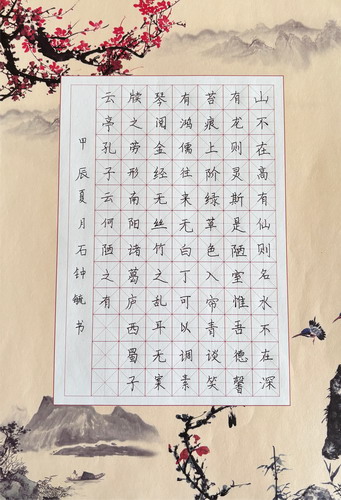 山不在高有仙则名水不在深
有龙则灵斯是陋室惟吾德馨
苔痕上阶绿草色入帘青谈笑
有鸿儒往来无白丁可以调素
琴阅金经无丝竹之乱耳无案
牍之劳形南阳诸葛庐西蜀子
云亭孔子云何陋之有
甲辰夏月石钟毓书